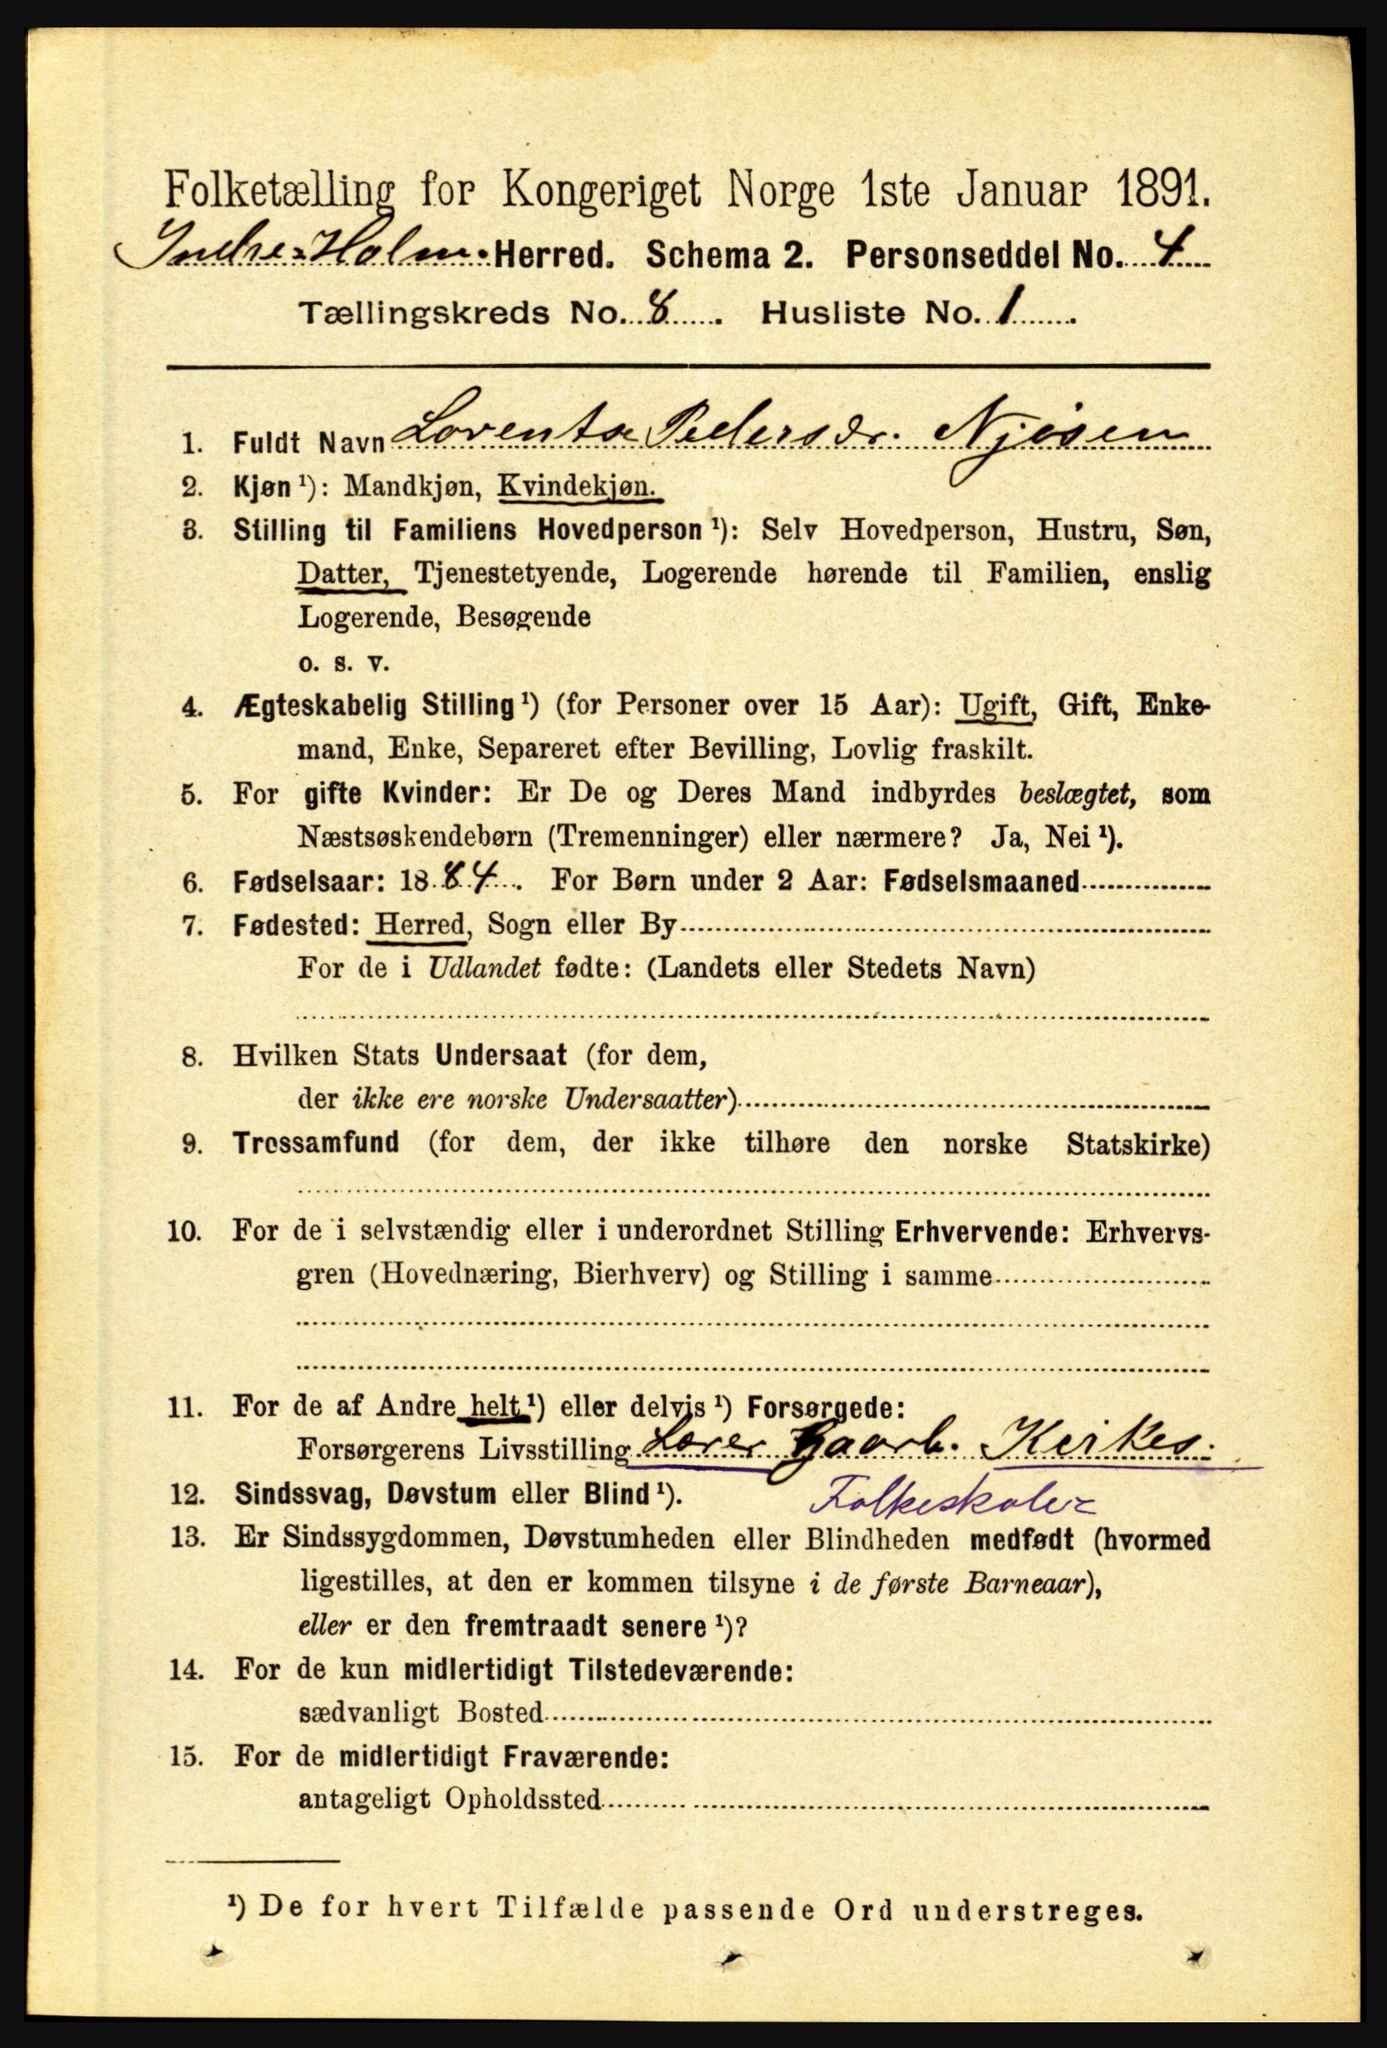 Folketælling for Kongeriget Norge 1ste Januar 1891.
Indre Holm. Herred. Schema 2. Personseddel No. 4
Tællingskreds No. 8. Husliste No. 1.
1. Fuldt Navn Lorentse Pedersdr. Njøsen
2. Kjøn ¹): Mandkjøn, Kvindekjøn.
3. Stilling til Familiens Hovedperson ¹): Selv Hovedperson, Hustru, Søn,
Datter, Tjenestetyende, Logerende hørende til Familien, enslig
Logerende, Besøgende
o. s. v.
4. Ægteskabelig Stilling ¹) (for Personer over 15 Aar): Ugift, Gift, Enke-
mand, Enke, Separeret efter Bevilling, Lovlig fraskilt.
5. For gifte Kvinder: Er De og Deres Mand indbyrdes beslægtet, som
Næstsøskendebørn (Tremenninger) eller nærmere? Ja, Nei ¹).
6. Fødselsaar: 1884. For Børn under 2 Aar: Fødselsmaaned
7. Fødested: Herred, Sogn eller By
For de i Udlandet fødte: (Landets eller Stedets Navn)
8. Hvilken Stats Undersaat (for dem,
der ikke ere norske Undersaatter)
9. Trossamfund (for dem, der ikke tilhøre den norske Statskirke)
10. For de i selvstændig eller i underordnet Stilling Erhvervende: Erhvervs-
gren (Hovednæring, Bierhverv) og Stilling i samme
11. For de af Andre helt ¹) eller delvis ¹) Forsørgede:
Forsørgerens Livsstilling Lærer Gaarb. Kirkes.
12. Sindssvag, Døvstum eller Blind ¹). Folkeskoler
13. Er Sindssygdommen, Døvstumheden eller Blindheden medfødt (hvormed
ligestilles, at den er kommen tilsyne i de første Barneaar),
eller er den fremtraadt senere ¹)?
14. For de kun midlertidigt Tilstedeværende:
sædvanligt Bosted
15. For de midlertidigt Fraværende:
antageligt Opholdssted
¹) De for hvert Tilfælde passende Ord understreges.